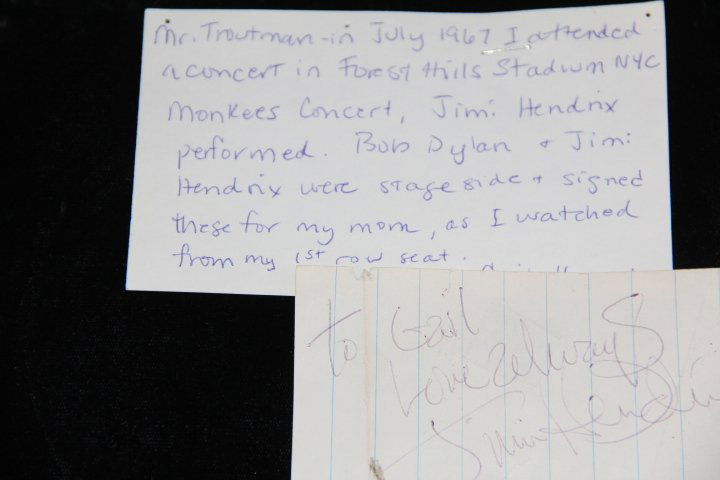 Mr. Troutman - in July 1967 I attended
a concert in Forest Hills Stadium NYC
Monkees Concert, Jimi Hendrix
performed. Bob Dylan + Jimi
Hendrix were stage side + signed
these for my mom, as I watched
from my 1st row seat.
To Gail
Love always
Jimi Hendrix